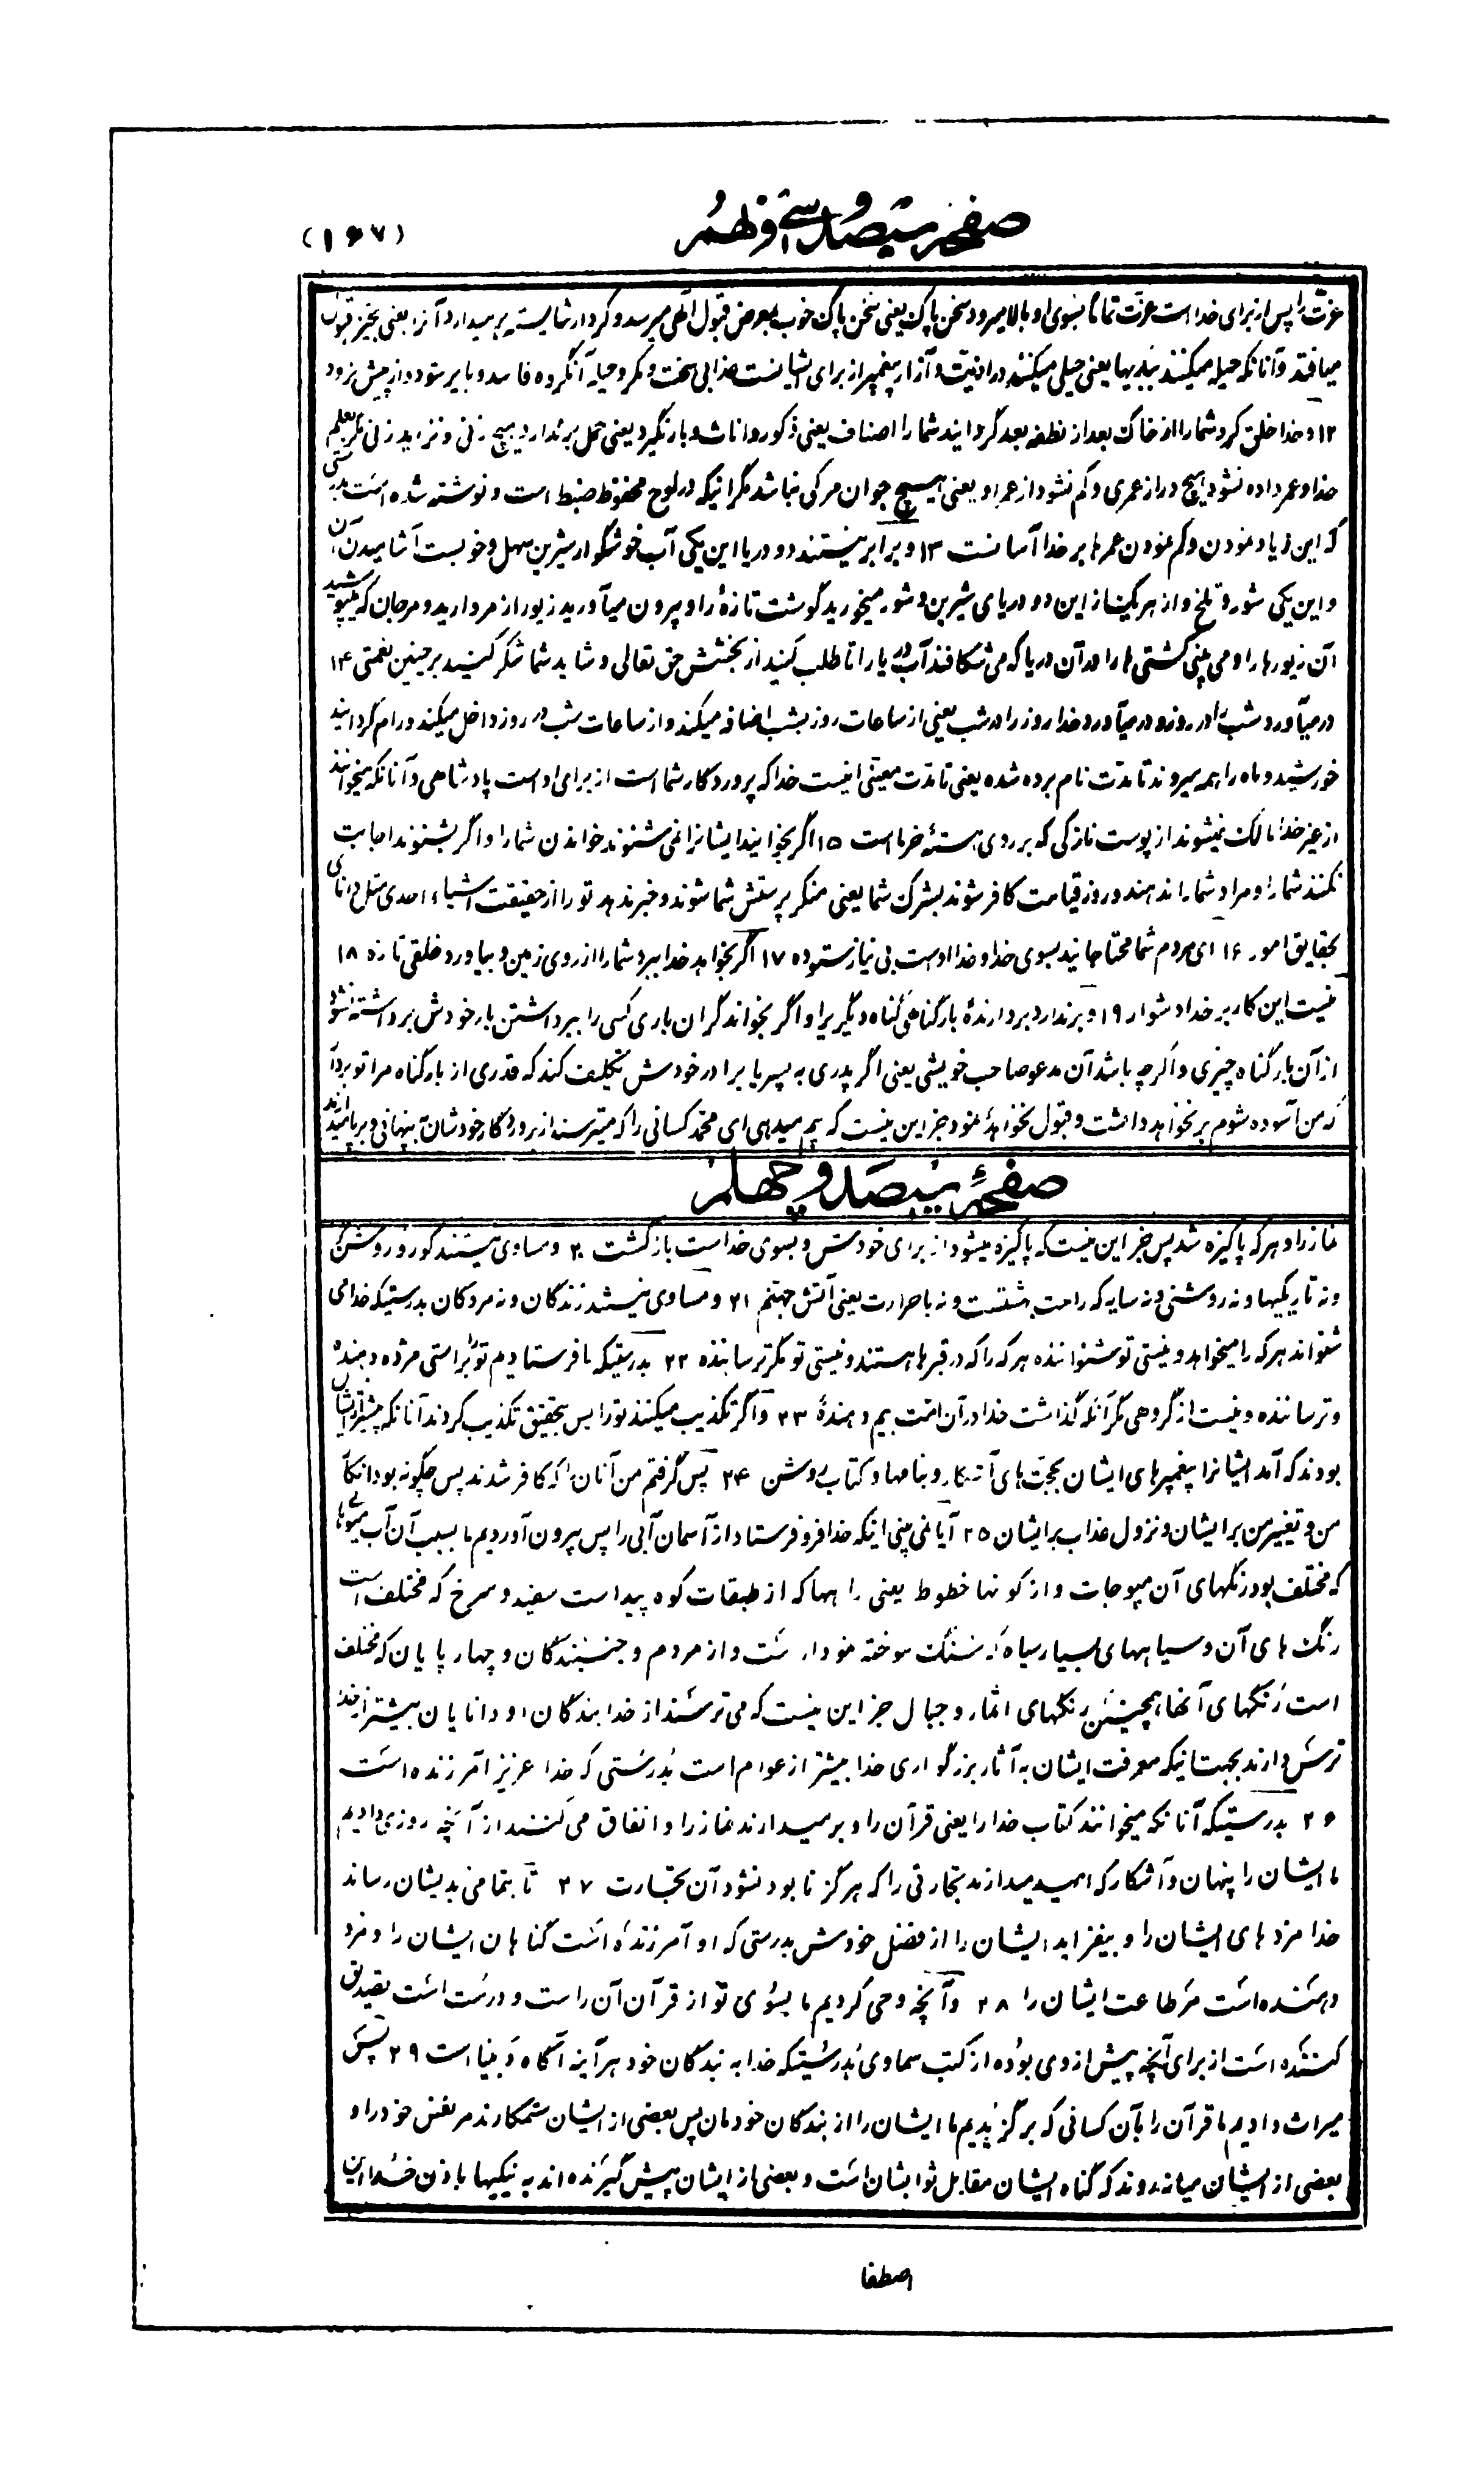 صفحهٔ سیصد و سی و نهم
(۱۶۷)
عزت را پس از برای خداست عزت تماما بسوی او بالا میرود سخن پاک یعنی سخن پاک خوب بمعرض قبول الهی میرسد و کردار شایسته برمیدارد آنرا یعنی بحیز قبول
میافتد و آنانکه حیله میکنند ببدیها یعنی حیلی میکنند در اذیت و آزار پیغمبر از برای ایشانست عذابی سخت و مکر و حیله آنگروه فاسد و بایر شود و از پیش نرود
۱۲ و خدا خلق کرد شما را از خاک بعد از نطفه بعد گردانید شما را اصناف یعنی ذکور و اناث و بار نگیرد یعنی حمل برندارد هیچ زنی و نزاید زنی مگر بعلم
خدا و عمر داده نشود هیچ دراز عمری و کم نشود از عمر او یعنی هیچ جوان مرگی نباشد مگر اینکه در لوح محفوظ ضبط است و نوشته شده است بدرستی
که این زیاد نمودن و کم نمودن عمرها بر خدا آسانست ۱۳ و برابر نیستند دو دریا این یکی آب خوشگوار شیرین سهل و خوبست آشامیدن آن
و این یکی شور و تلخ و از هر یک از این دو دریای شیرین و شور میخورید گوشت تازه را و بیرون میآورید زیور از مروارید و مرجان که میپوشید
آن زیورها را و می بینی کشتی ها را در آن دریا که می شکافند آب دریا را تا طلب کنید از بخشش حق تعالی و شاید شما شکر کنید بر چنین نعمتی ۱۴
در میآورد شب را در روز و در میآورد خدا روز را در شب یعنی از ساعات روز بشب اضافه میکند و از ساعات شب در روز داخل میکند و رام گردانید
خورشید و ماه را همه میروند تا مدت نام برده شده یعنی تا مدت معینی اینست خدا که پروردگار شما است از برای او است پادشاهی و آنانکه میخوانند
از غیر خدا مالک نمیشوند از پوست نازکی که بر روی هستهٔ خرما است ۱۵ اگر بخوانید ایشانرا نمی شنوند خواندن شما را و اگر بشنوند اجابت
نکنند شما را و مراد شما را ندهند و روز قیامت کافر شوند بشرک شما یعنی منکر پرستش شما شوند و خبر ندهد تو را از حقیقت اشیاء احدی مثل دانای
بحقایق امور ۱۶ ای مردم شما محتاجانید بسوی خدا و خدا اوست بی نیاز ستوده ۱۷ اگر بخواهد خدا ببرد شما را از روی زمین و بیاورد خلقی تازه ۱۸
نیست این کار بر خدا دشوار ۱۹ و برندارد بردارندهٔ بار گناهی گناه دیگریرا و اگر بخواند گران باری کسی را ببرداشتن بار خودش برداشته نشود
از آن بار گناه چیزی و اگرچه باشد آن مدعو صاحب خویشی یعنی اگر پدری به پسر یا برادر خودش تکلیف کند که قدری از بار گناه مرا تو بردار
که من آسوده شوم بر نخواهد داشت و قبول نخواهد نمود جز این نیست که بیم میدهی ای محمد کسانی را که میترسند از پروردگار خودشان بپنهانی و برپا میدارند
صفحهٔ سیصد و چهلم
نماز را و هر که پاکیزه شد پس جز این نیست که پاکیزه میشود از برای خودش و بسوی خداست بازگشت ۲۰ و مساوی نیستند کور و روشن
و نه تاریکیها و نه روشنی و نه سایه که راحت بهشتست و نه با حرارت یعنی آتش جهنم ۲۱ و مساوی نیستند زندگان و نه مردگان بدرستیکه خدا می
شنواند هر که را میخواهد و نیستی تو شنواننده هر که را که در قبرها هستند و نیستی تو مگر ترساننده ۲۲ بدرستیکه ما فرستادیم تو را براستی مژده دهنده
و ترساننده و نیست از گروهی مگر آنکه گذاشت خدا در آن امت بیم دهندهٔ ۲۳ و اگر تکذیب میکنند تو را پس بتحقیق تکذیب کردند آنانکه پیشتر از ایشان
بودند که آمد ایشانرا پیغمبرهای ایشان بحجت های آشکار و بنامها و کتاب روشن ۲۴ پس گرفتم من آنان را که کافر شدند پس چگونه بود انکار
من و تغییر من بر ایشان و نزول عذاب بر ایشان ۲۵ آیا نمی بینی اینکه خدا فرو فرستاد از آسمان آبی را پس بیرون آوردیم ما بسبب آن آب میوه ها
که مختلف بود رنگهای آن میوجات و از کوهها خطوط یعنی راهها که از طبقات کوه پیداست سفید و سرخ که مختلف است
رنگ های آن و سیاهیهای بسیار سیاه که سنگ سوخته نمودار است و از مردم و جنبندگان و چهار پایان که مختلف
است رنگهای آنها همچنین رنگهای اثمار و جبال جز این نیست که می ترسند از خدا بندگان او دانایان بیشتر از خدا
ترس دارند بجهت اینکه معرفت ایشان به آثار بزرگواری خدا بیشتر از عوام است بدرستی که خدا عزیز آمرزنده است
۲۶ بدرستیکه آنانکه میخوانند کتاب خدا را یعنی قرآن را و برمیدارند نماز را و انفاق می کنند از آنچه روزی دادیم
ما ایشان را پنهان و آشکار که امید میدارند تجارتی را که هرگز نابود نشود آن تجارت ۲۷ تا بتمامی بدیشان رساند
خدا مزدهای ایشان را و بیفزاید ایشان را از فضل خودش بدرستی که او آمرزنده است گناهان ایشان را و مزد
دهنده است مر طاعت ایشان را ۲۸ و آنچه وحی کردیم ما بسوی تو از قرآن آن راست و درست است تصدیق
کننده است از برای آنچه پیش از وی بوده از کتب سماوی بدرستیکه خدا به بندگان خود هر آینه آگاه و بینا است ۲۹ پس
میراث دادیم ما قرآن را بآن کسانی که برگزیدیم ما ایشان را از بندگان خودمان پس بعضی از ایشان ستمکارند مر نفس خود را و
بعضی از ایشان میانه روند که گناه ایشان مقابل ثوابشان است و بعضی از ایشان پیش گیرنده اند به نیکیها باذن خدا این
اصطفا